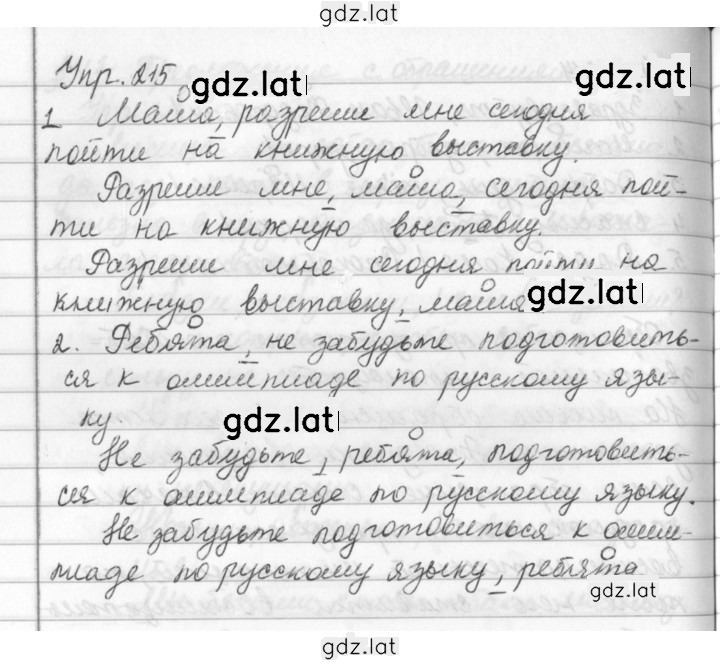 gdz.lat
Упр. 215
gdz.lat
1 Маша, разреши мне сегодня
пойти на книжную выставку.
Разреши мне, маша, сегодня пой-
ти на книжную выставку.
Разреши мне сегодня пойти на
книжную выставку, маша
gdz.lat
2. Ребята, не забудьте подготовить-
ся к олимпиаде по русскому язы-
ку.
gdz.lat
Не забудьте, ребята, подготовить-
ся к олимпиаде по русскому языку.
Не забудьте подготовиться к олим-
пиаде по русскому языку, ребята
gdz.lat
gdz.lat